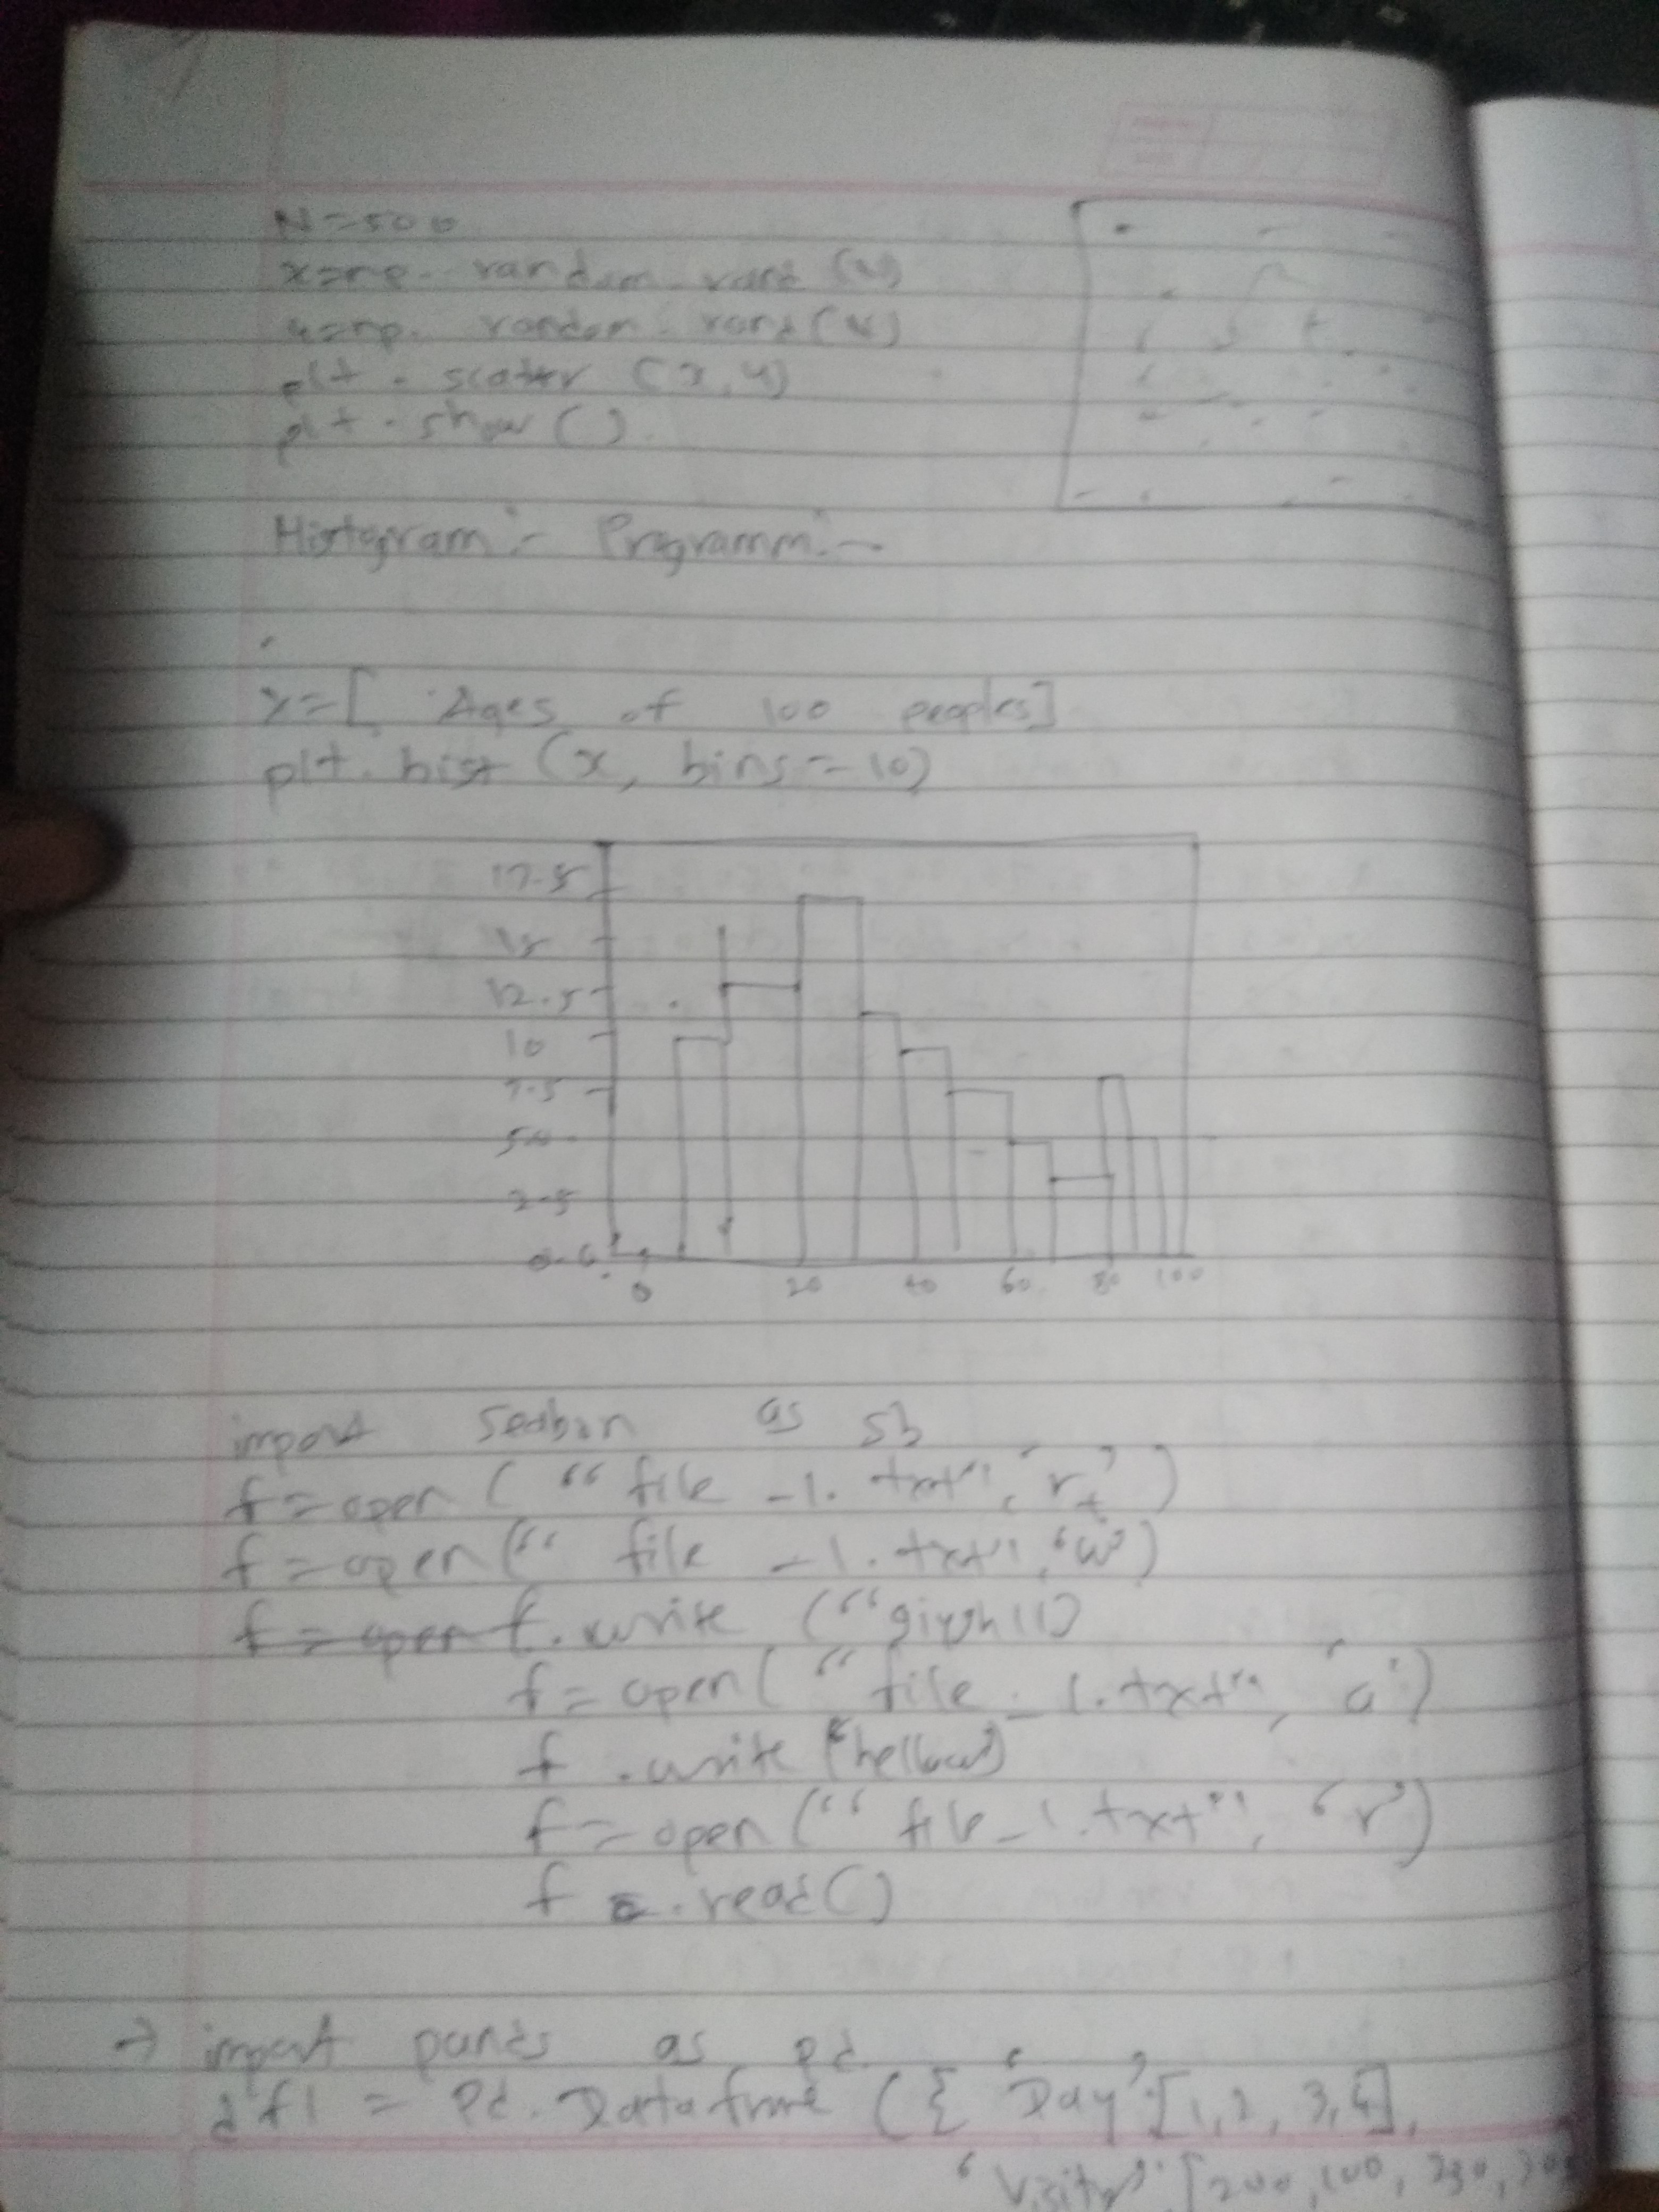 N=500
x=np. random. rand (N)
y=np. random. rand (N)
plt. scatter (x,y)
plt. show ()
Histogram :- Programm :-
x=[ Ages of 100 peoples]
plt. hist (x, bins=10)
17.5
15
12.5
10
7.5
5.0
2.5
0.0
0 20 40 60 80 100
import seabon as sb
f=open ( “ file -1. txt", 'r+')
f=open (“ file -1.txt", 'w')
f = open f.write (“
f=open( “ file_1.txt", 'a')
f .write ('hellow')
f=open (“ file_1.txt", 'r')
f .read()
→ import pandas as pd
df1 = pd. Dataframe ({ 'Day':[1,2, 3,4],
[200,100, 230,